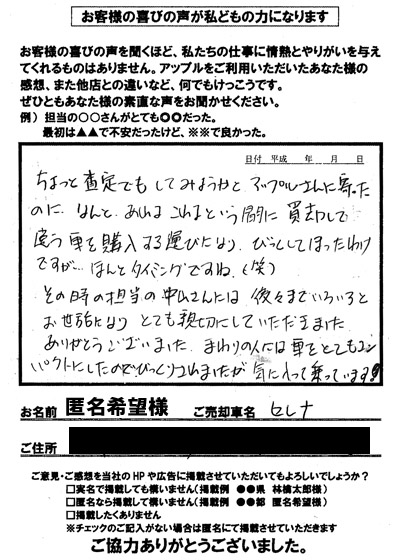 お客様の喜びの声が私どもの力になります
お客様の喜びの声を聞くほど、私たちの仕事に情熱とやりがいを与え
てくれるものはありません。アップルをご利用いただいたあなた様の
感想、また他店との違いなど、何でもけっこうです。
ぜひともあなた様の素直な声をお聞かせください。
例）担当の〇〇さんがとても◎◎だった。
最初は▲▲で不安だったけど、※※で良かった。
日付 平成　年　月　日
ちょっと査定でもしてみようかと アップルさんに寄った
のに、なんと、あれよこれよという間に 買却して
違う車を購入する運びになり、びっくりしてしまったわけ
ですが… ほんとタイミングですね。(笑)
その時の担当の中山さんには 後々までいろいろと
お世話になり とても親切にしていただきました
ありがとうございました。まわりの人には車をとてもコン
パクトにしたのでびっくりされましたが 気に入って乗っています!!
お名前 匿名希望様 ご売却車名 セレナ
ご住所
ご意見・ご感想を当社のHPや広告に掲載させていただいてもよろしいでしょうか？
□実名で掲載しても構いません（掲載例 ●●県 林檎太郎様）
□匿名なら掲載して構いません（掲載例 ●●都 匿名希望様）
□掲載したくありません
※チェックのご記入がない場合は匿名にて掲載させていただきます
ご協力ありがとうございました。